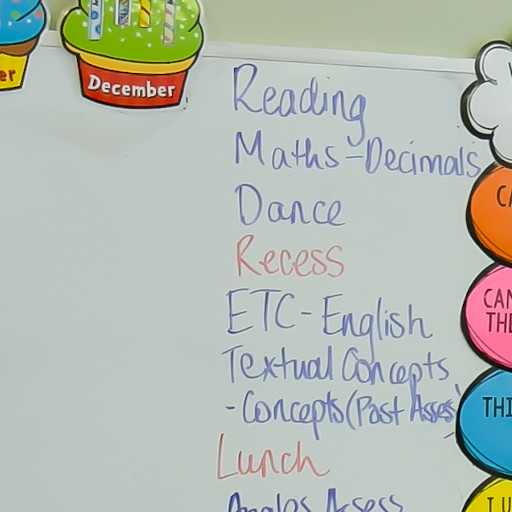 er
December
Reading
Maths-Decimals
Dance
Recess
ETC-English
Textual Concepts
-Concepts(Past Assess
Lunch
Assess
CA
CAN
THE
THI
I U